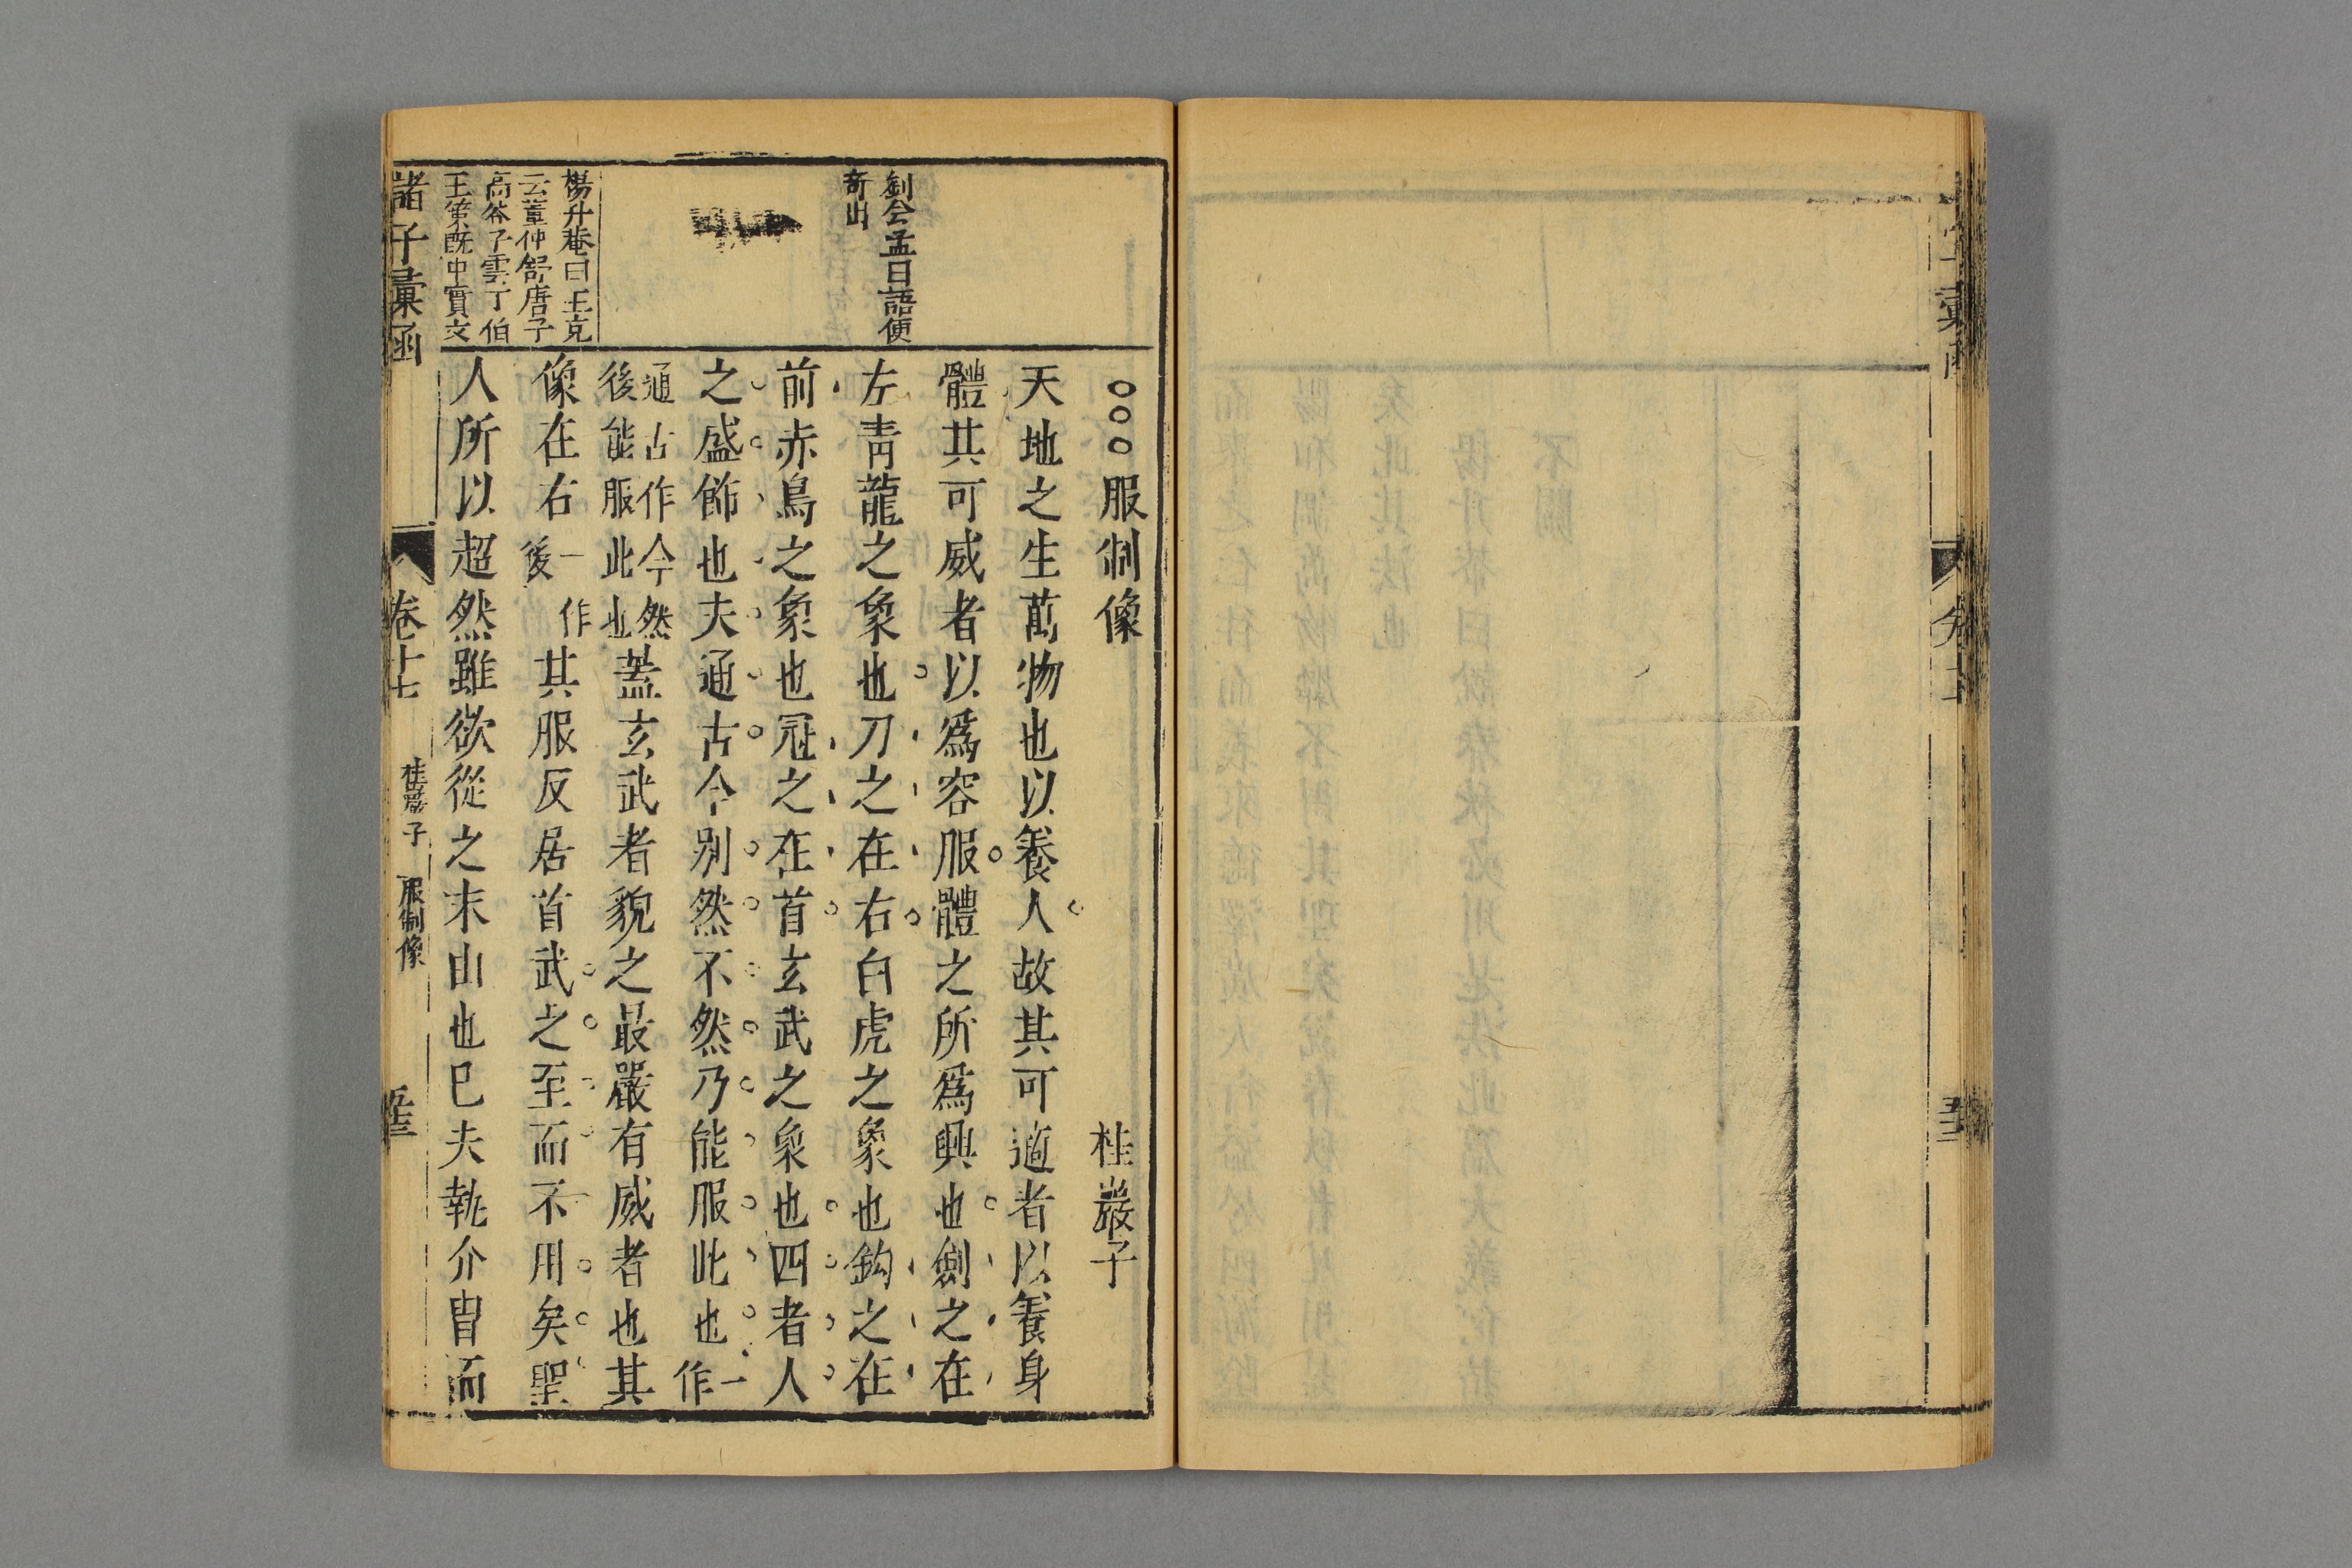 劉會孟曰語便
奇出
楊升菴曰王克
云董仲舒唐子
高谷子雲丁伯
王策既中實文
服制像 桂巖子
天地之生萬物也以養人故其可適者以養身
體其可威者以爲容服體之所爲興也劍之在
左青龍之象也刀之在右白虎之象也鈎之在
前赤鳥之象也冠之在首玄武之象也四者人
之盛飾也夫通古今別然不然乃能服此也一作
通古作今然
後能服此也
蓋玄武者貌之最嚴有威者也其
像在右一作後其服反居首武之至而不用矣聖
人所以超然雖欲從之末由也已夫執介冑而
諸子彙函 卷十七 桂巖子 服制像